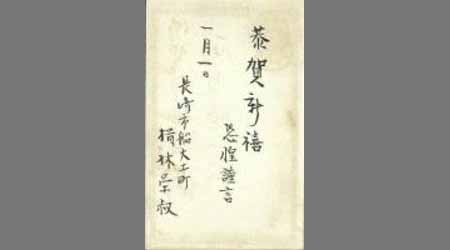 恭賀新禧
恐惶謹言
一月一日
長崎市船大工町
楢林栄叔